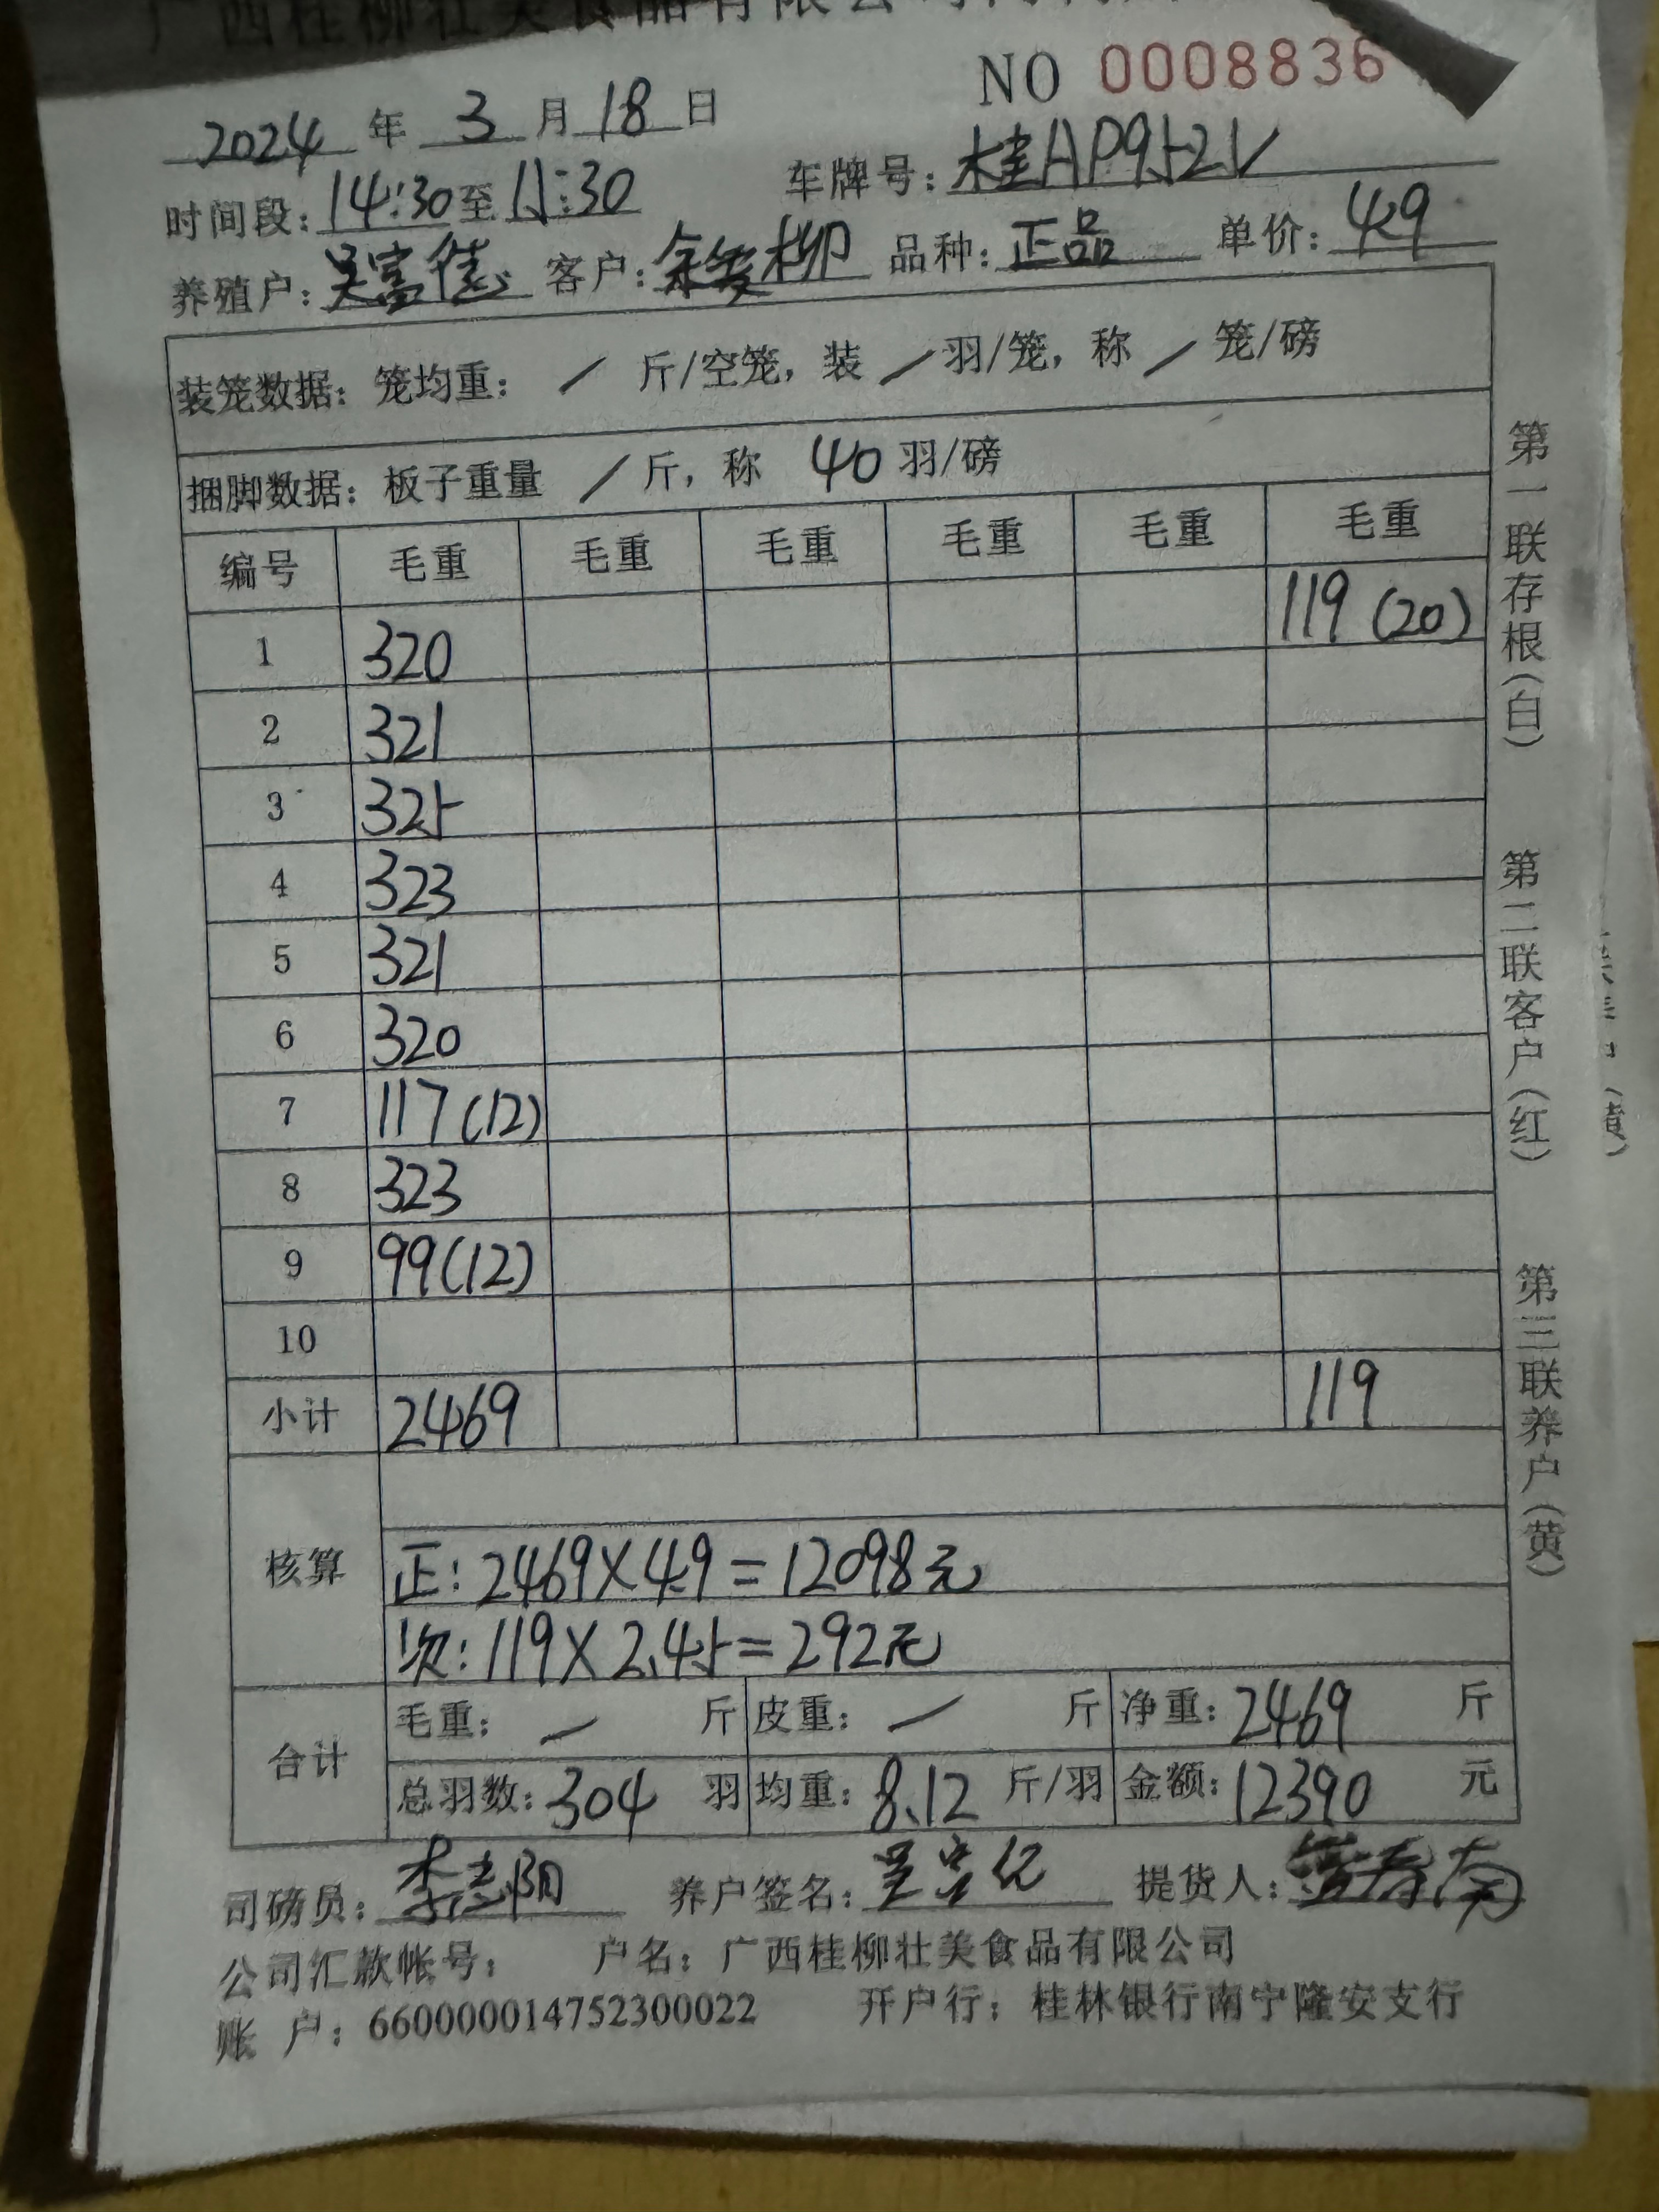 广西桂柳壮美食品有限公司
NO 0008836
2024 年 3 月 18 日
时间段: 14:30 至 15:30 车牌号: 桂AP952V
养殖户: 吴富德 客户: 柳 品种: 正品 单价: 4.9
装笼数据: 笼均重: / 斤/空笼, 装 / 羽/笼, 称 / 笼/磅
捆脚数据: 板子重量 / 斤, 称 40 羽/磅
编号 毛重 毛重 毛重 毛重 毛重 毛重
1 320 119 (20)
2 321
3 325
4 323
5 321
6 320
7 117 (12)
8 323
9 99 (12)
10
小计 2469 119
核算
正: 2469 X 4.9 = 12098元
次: 119 X 2.45 = 292元
合计 毛重: / 斤 皮重: / 斤 净重: 2469 斤
总羽数: 304 羽 均重: 8.12 斤/羽 金额: 12390 元
司磅员: 李志阳 养户签名: 提货人:
公司汇款帐号: 户名: 广西桂柳壮美食品有限公司
账 户: 660000014752300022 开户行: 桂林银行南宁隆安支行
第一联存根(白) 第二联客户(红) 第三联养户(黄)